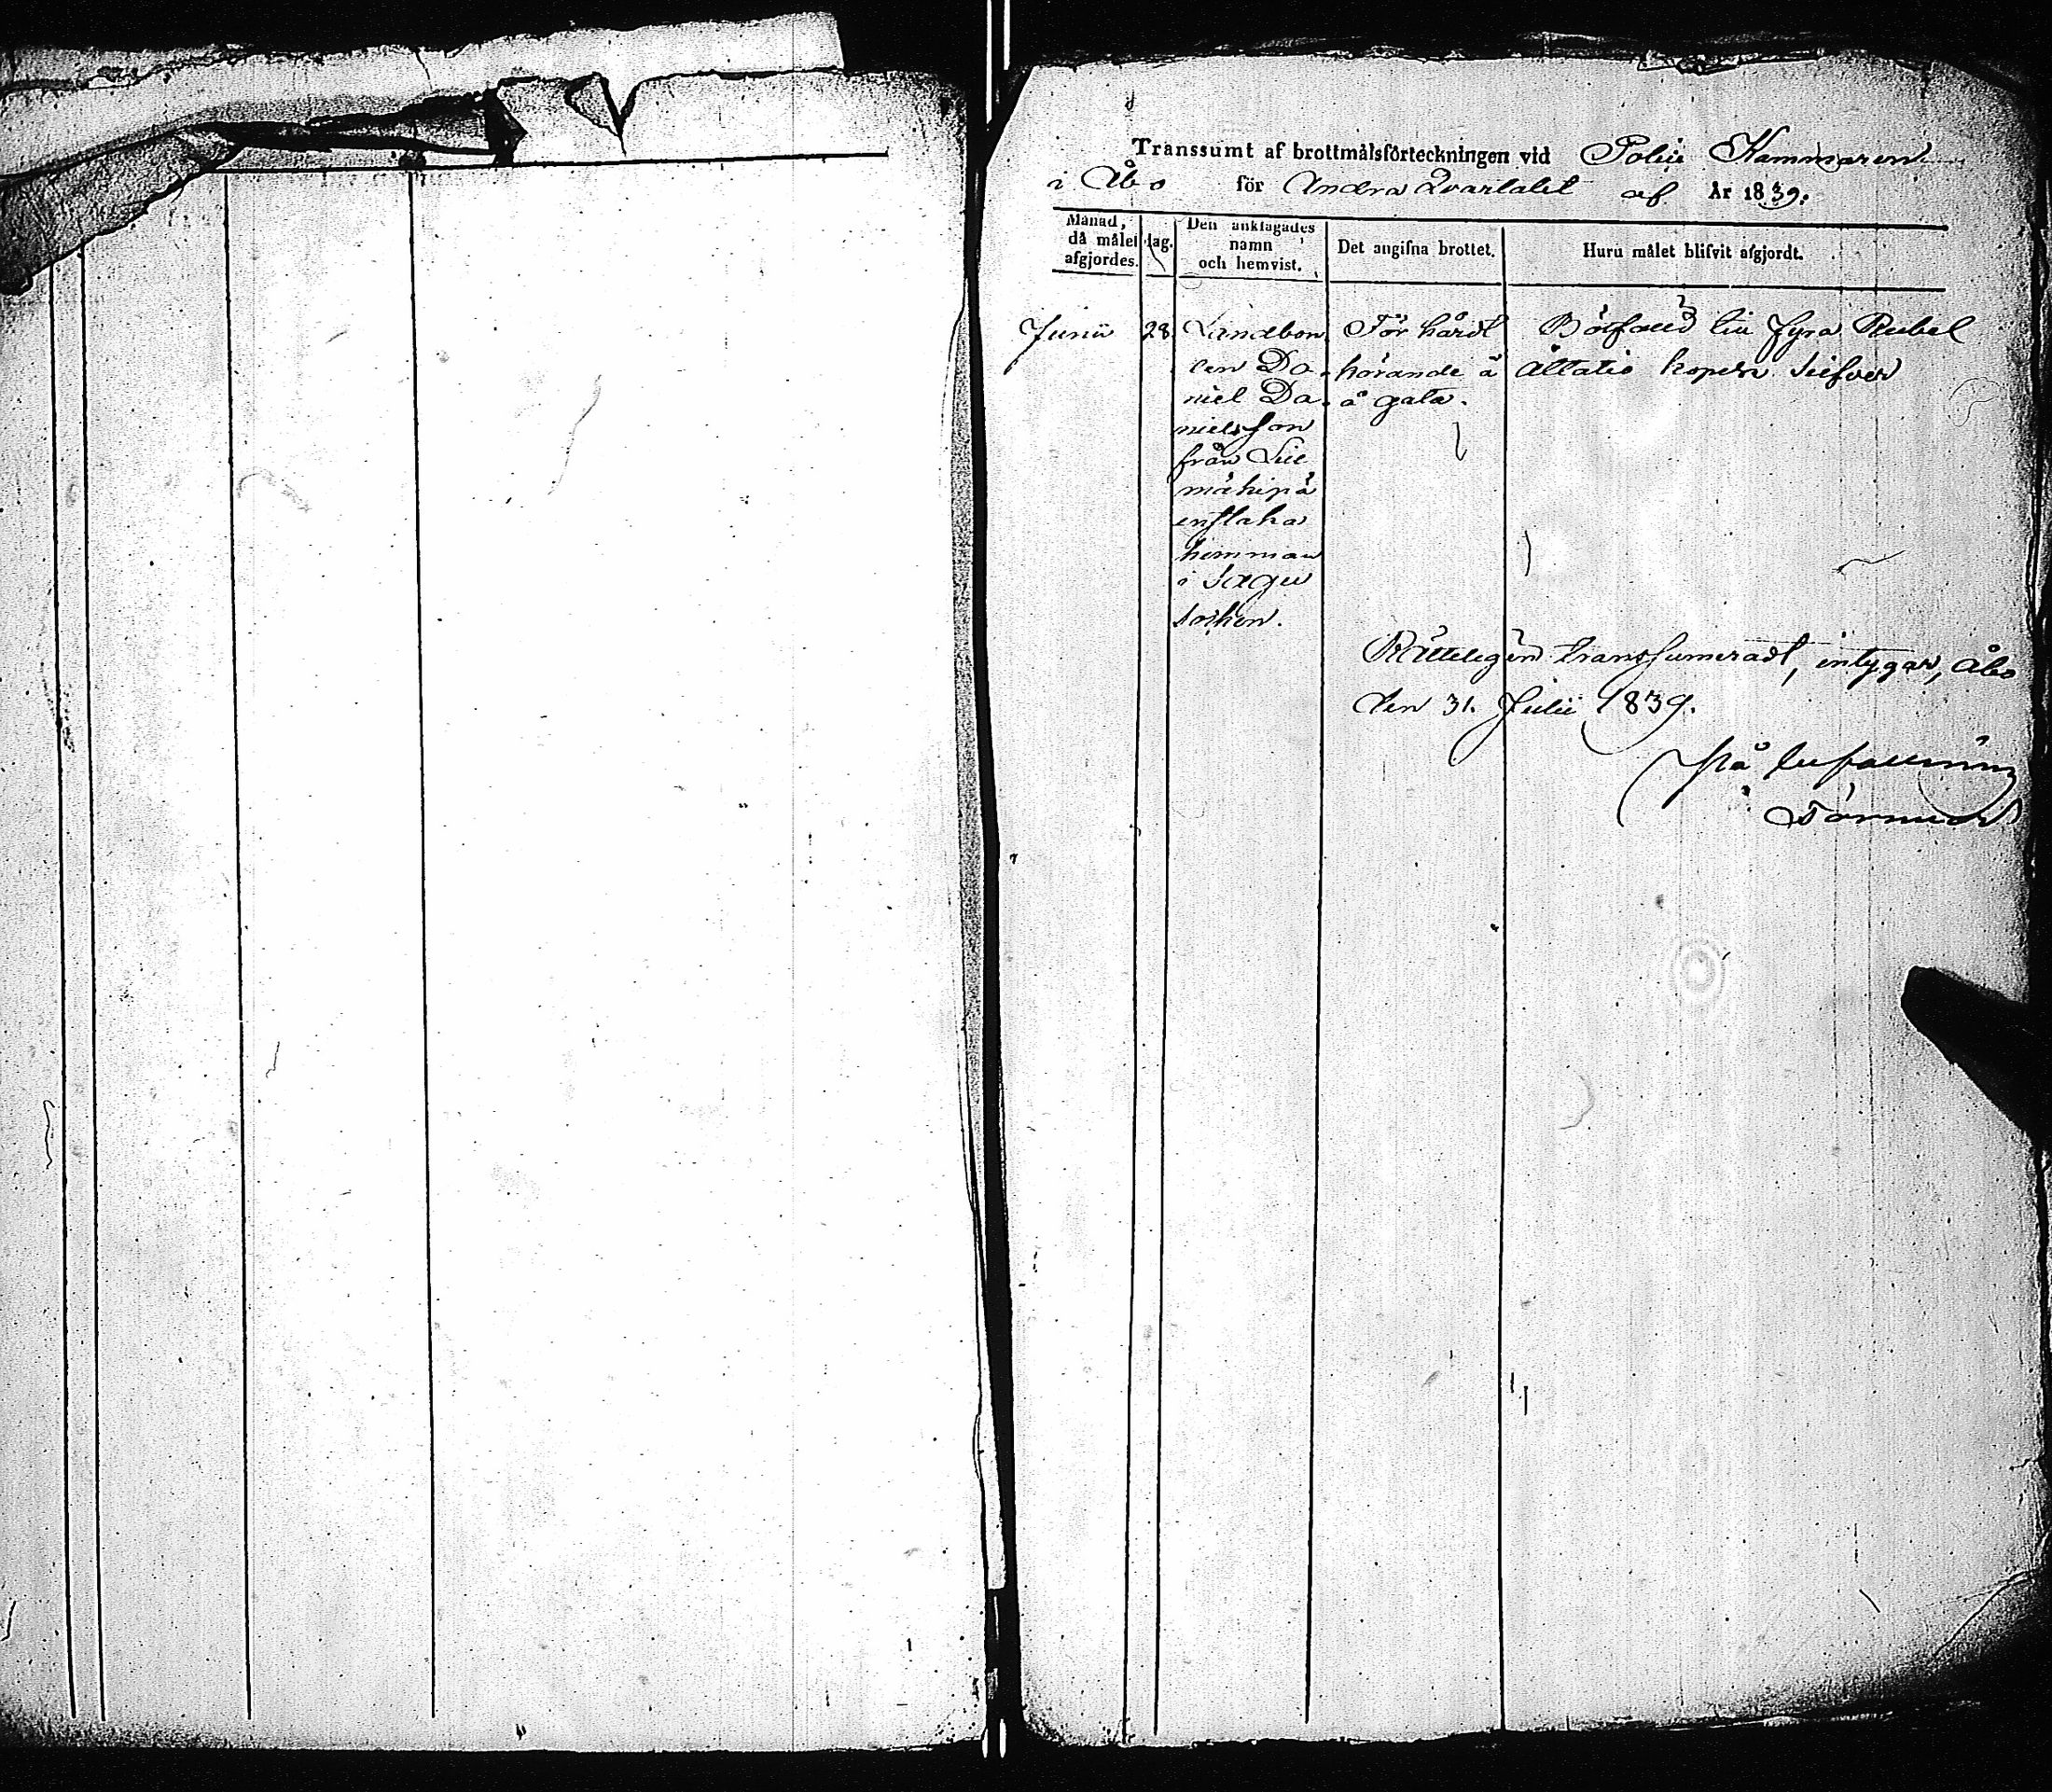 Transsumt af brottmålsförteckningen vid Police Kammaren
i Åbo för Andra Qvartalet af År 1839.
Månad, då målet afgjordes.
dag.
Den anklagades namn och hemvist.
Det angifna brottet.
Huru målet blifvit afgjordt.
Junii 28
Landbon
Da
niel Da
nielsson
från
enstaka
hemman
i Sagu
Socken.
För hårdt
körande å
å gata.
Bötfäld till fyra Rubel
åttatio kopek Silfver
Rätteligen transsumeradt, intygar, Åbo
den 31. Julii 1839.
På befallning